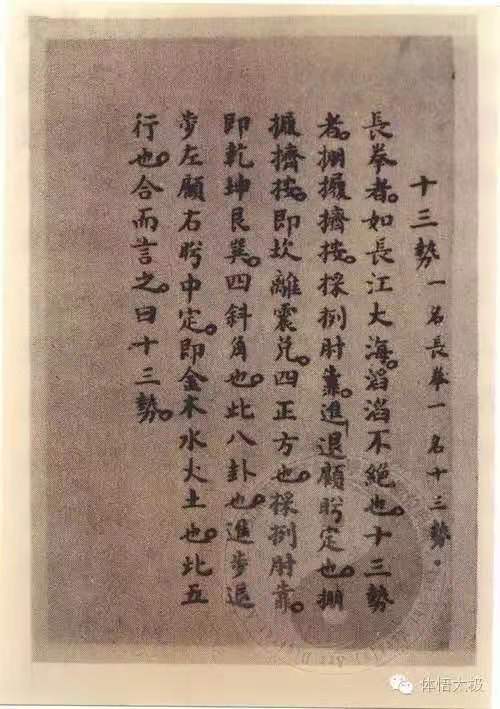 十三勢一名長拳一名十三勢。
長拳者。如長江大海。滔滔不絶也。十三勢
者。掤攦擠按。採挒肘靠。進退顧盻定也。掤
攦擠按。即坎離震兌。四正方也。採挒肘靠。
即乾坤艮巽。四斜角也。此八卦也。進步退
步左顧右盻中定。即金木水火土也。此五
行也。合而言之。曰十三勢。
体悟太极